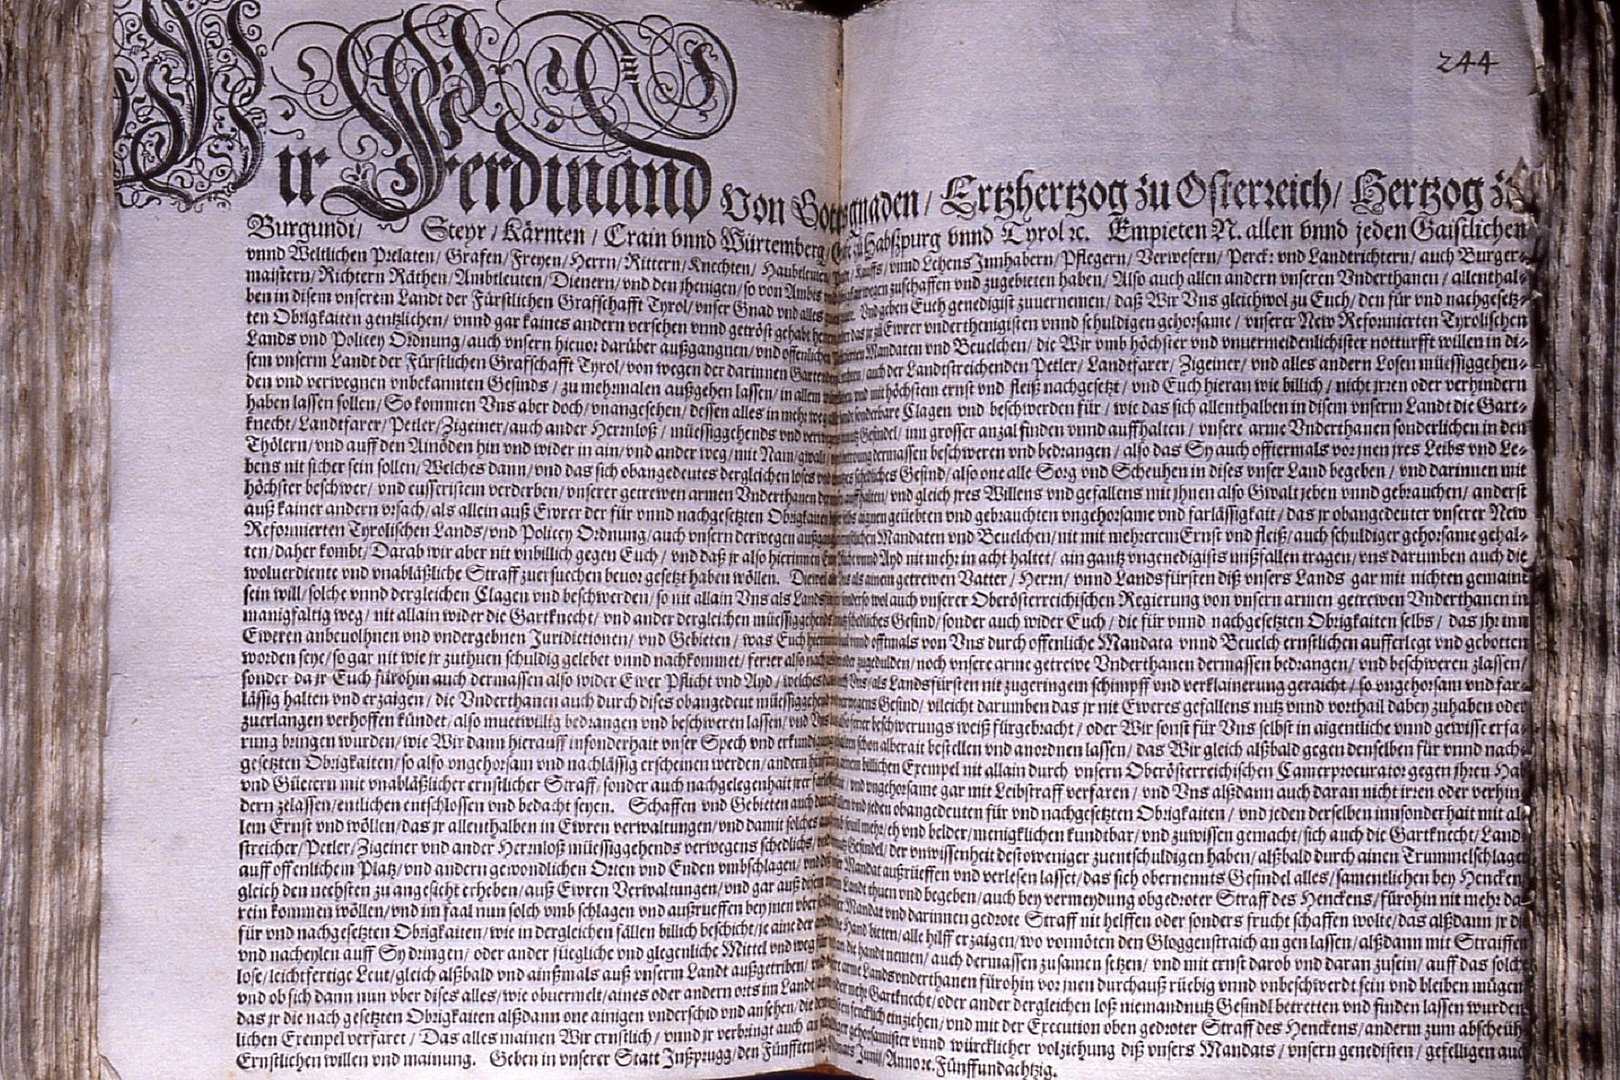 244
Wir Ferdinand Von Gottsgnaden / Ertzhertzog zu Osterreich / Hertzog zu
Burgundi / Steyr / Kärnten / Crain vnnd Würtemberg / Habspurg vnnd Tyrol ꝛc. Empieten N. allen vnnd jeden Gaistlichen
vnnd Weltlichen Prelaten / Grafen / Freyen / Herrn / Rittern / Knechten / Haubtleuten / vnnd Lehens Innhabern / Pflegern / Verwesern / Perck: vnd Landtrichtern / auch Burger-
maistern / Richtern Räthen / Ambtleuten / Dienern / vnd den jhenigen / so von Ambts wegen zuschaffen vnd zugebieten haben / Also auch allen andern vnseren Vnderthanen / allenthal-
ben in disem vnserem Landt der Fürstlichen Graffschafft Tyrol / vnser Gnad vnd alles Vnd geben Euch genedigist zuuernemen / daß Wir Vns gleichwol zu Euch / den für vnd nachgesetz-
ten Obrigkaiten gentzlichen / vnnd gar kaines andern versehen vnnd getröst gehabt das jr zu Ewrer vnderthenigisten vnnd schuldigen gehorsame / vnserer New Reformierten Tyrolischen
Lands vnd Policey Ordnung / auch vnsern hieuor darüber außgangnen / vnd offentlichen Mandaten vnd Beuelchen / die Wir vmb höchster vnd vnuermeidenlichister notturfft willen in di-
sem vnserm Landt der Fürstlichen Grafschafft Tyrol / von wegen der darinnen auch der Landtstreichenden Petler / Landtfarer / Zigeiner / vnd alles andern Losen müessiggehen-
den vnd verwegnen vnbekannten Gesinds / zu mehrmalen außgehen lassen / in allem vnd mit höchstem ernst vnd fleiß nachgesetzt / vnd Euch hieran wie billich / nicht jrren oder verhindern
haben lassen sollen / So kommen Vns aber doch / vnangesehen / dessen alles in mehr weg sonderbare Clagen vnd beschwerden für / wie das sich allenthalben in disem vnserm Landt die Gart-
knecht / Landtfarer / Petler / Zigeiner / auch ander Herrnloß / müessiggehends vnd Gesindel / inn grosser anzal finden vnnd auffhalten / vnsere arme Vnderthanen sonderlichen in den
Thölern / vnd auff den Ainöden hin vnd wider in ain / vnd ander weg / mit Nam / dermassen beschweren vnd bedrangen / also das Sy auch offtermals vor jnen jres Leibs vnd Le-
bens nit sicher sein sollen / Welches dann / vnd das sich obangedeutes dergleichen loses schedliches Gesind / also one alle Sorg vnd Scheuhen in dises vnser Land begeben / vnd darinnen mit
höchster beschwer / vnd eusseristem verderben / vnserer getrewen armen Vnderthanen auffhalten / vnd gleich jres Willens vnd gefallens mit jhnen also Gwalt jeben vnnd gebrauchen / anderst
auß kainer andern vrsach / als allein auß Ewrer der für vnnd nachgesetzten Obrigkaiten aignen geüebten vnd gebrauchten vngehorsame vnd farlässigkait / das jr obangedeuter vnserer New
Reformierten Tyrolischen Lands / vnd Policey Ordnung / auch vnsern derwegen Mandaten vnd Beuelchen / nit mit mehrerem Ernst vnd fleiß / auch schuldiger gehorsame gehal-
ten / daher kombt / Darab wir aber nit vnbillich gegen Euch / vnd daß jr also hierinnen vnnd Ayd nit mehr in acht haltet / ain gantz vngenedigists mißfallen tragen / vns darumben auch die
wolverdiente vnd vnabläßliche Straff zuersuechen beuor gesetzt haben wöllen. Dieweil als ainem getrewen Vatter / Herrn / vnnd Landsfürsten diß vnsers Lands gar mit nichten gemaint
sein will / solche vnnd dergleichen Clagen vnd beschwerden / so nit allain Vns als wol auch vnserer Oberösterreichischen Regierung von vnsern armen getrewen Vnderthanen in
manigfaltig weg / nit allain wider die Gartknecht / vnd ander dergleichen müessiggehends schedliches Gesind / sonder auch wider Euch / die für vnnd nachgesetzten Obrigkaiten selbs / das jhr inn
Eweren anbeuolhnen vnd vndergebnen Juridictionen / vnd Gebieten / was Euch vnnd offtmals von Vns durch offenliche Mandata vnnd Beuelch ernstlichen aufferlegt vnd gebotten
worden seye / so gar nit wie jr zuthuen schuldig gelebet vnnd nachkommet / ferrer also zugedulden / noch vnsere arme getrewe Vnderthanen dermassen bedrangen / vnd beschweren zlassen /
sonder da jr Euch fürohin auch dermassen also wider Ewer Pflicht vnd Ayd / welches Vns / als Landsfürsten nit zugeringem schimpff vnd verklainerung geraicht / so vngehorsam vnd far-
lässig halten vnd erzaigen / die Vnderthanen auch durch dises obangedeut müessiggehend Gesind / vileicht darumben das jr nit Eweres gefallens nutz vnnd vorthail dabey zuhaben oder
zuerlangen verhoffen kündet / also muetwillig bedrangen vnd beschweren lassen / vnd beschwerungs weiß fürgebracht / oder Wir sonst für Vns selbst in aigentliche vnnd gewisse erfa-
rung bringen wurden / wie Wir dann hierauff insonderhait vnser Spech vnd schon alberait bestellen vnd anordnen lassen / das Wir gleich alßbald gegen denselben für vnnd nach-
gesetzten Obrigkaiten / so also vngehorsam vnd nachlässig erscheinen werden / andern billichen Exempel nit allain durch vnsern Oberösterreichischen Camerprocurator gegen jhren Hab
vnd Güetern mit vnabläßlicher ernstlicher Straff / sonder auch nachgelegenhait jrer vnd vngehorsame gar mit Leibstraff verfaren / vnd Vns alßdann auch daran nicht irren oder verhin-
dern zelassen / entlichen entschlossen vnd bedacht seyen. Schaffen vnd Gebieten auch vnd jeden obangedeuten für vnd nachgesetzten Obrigkaiten / vnd jeden derselben innsonderhait mit al-
lem Ernst vnd wöllen / das jr allenthalben in Ewren verwaltungen / vnd damit solches mehr / eh vnd belder / menigklichen kundtbar / vnd zuwissen gemacht / sich auch die Gartknecht / Land-
streicher / Petler / Zigeiner vnd ander Herrnloß müessiggehends verwegens schedlichs Gesindel / der vnwissenheit destoweniger zuentschuldigen haben / alßbald durch ainen Trummelschlager
auff offenlichem Platz / vnd andern gewondlichen Orten vnd Enden vmbschlagen / Mandat außrüeffen vnd verlesen lasset / das sich obernennts Gesindel alles / samentlichen bey Hencken
gleich den nechsten zu angesicht erheben / auß Ewren Verwaltungen / vnd gar auß Landt thuen vnd begeben / auch bey vermeydung obgedroter Straff des Henckens / fürohin nit mehr da-
rein kommen wöllen / vnd im faal nun solch vmb schlagen vnd außrueffen bey jnen Mandat vnd darinnen gedrote Straff nit helffen oder sonders frucht schaffen wolte / das alßdann jr die
für vnd nachgesetzten Obrigkaiten / wie in dergleichen fällen billich beschicht / je aine der Hand bieten / alle hilff erzaigen / wo vonnöten den Gloggenstraich an gen lassen / alßdann mit Straiffen
vnd nacheylen auff Sy dringen / oder ander füegliche vnd glegenliche Mittel vnd weg die handt nemen / auch dermassen zusamen setzen / vnd mit ernst darob vnd daran zusein / auff das solch
lose / leichtfertige Leut / gleich alßbald vnd ainßmals auß vnserm Landt außgetriben / arme Landsvnderthanen fürohin vor jnen durchauß rüebig vnnd vnbeschwerdt sein vnd bleiben mügen
vnd ob sich dann nun vber dises alles / wie obuermelt / aines oder andern orts im Landt mehr Gartknecht / oder ander dergleichen loß niemandnutz Gesindl betretten vnd finden lassen wurden
das jr die nach gesetzten Obrigkaiten alßdann one ainigen vnderschid vnd ansehen / die einziehen / vnd mit der Execution oben gedroter Straff des Henckens / anderm zum abscheüh-
lichen Exempel verfaret / Das alles mainen Wir ernstlich / vnnd jr verbringt auch an gehorsamister vnnd würcklicher volziehung diß vnsers Mandats / vnsern genedisten / gefelligen auch
Ernstlichen willen vnd mainung. Geben in vnserer Statt Inßprugg / den Fünfften Monats Junij / Anno ꝛc. Fünffundachtzig.